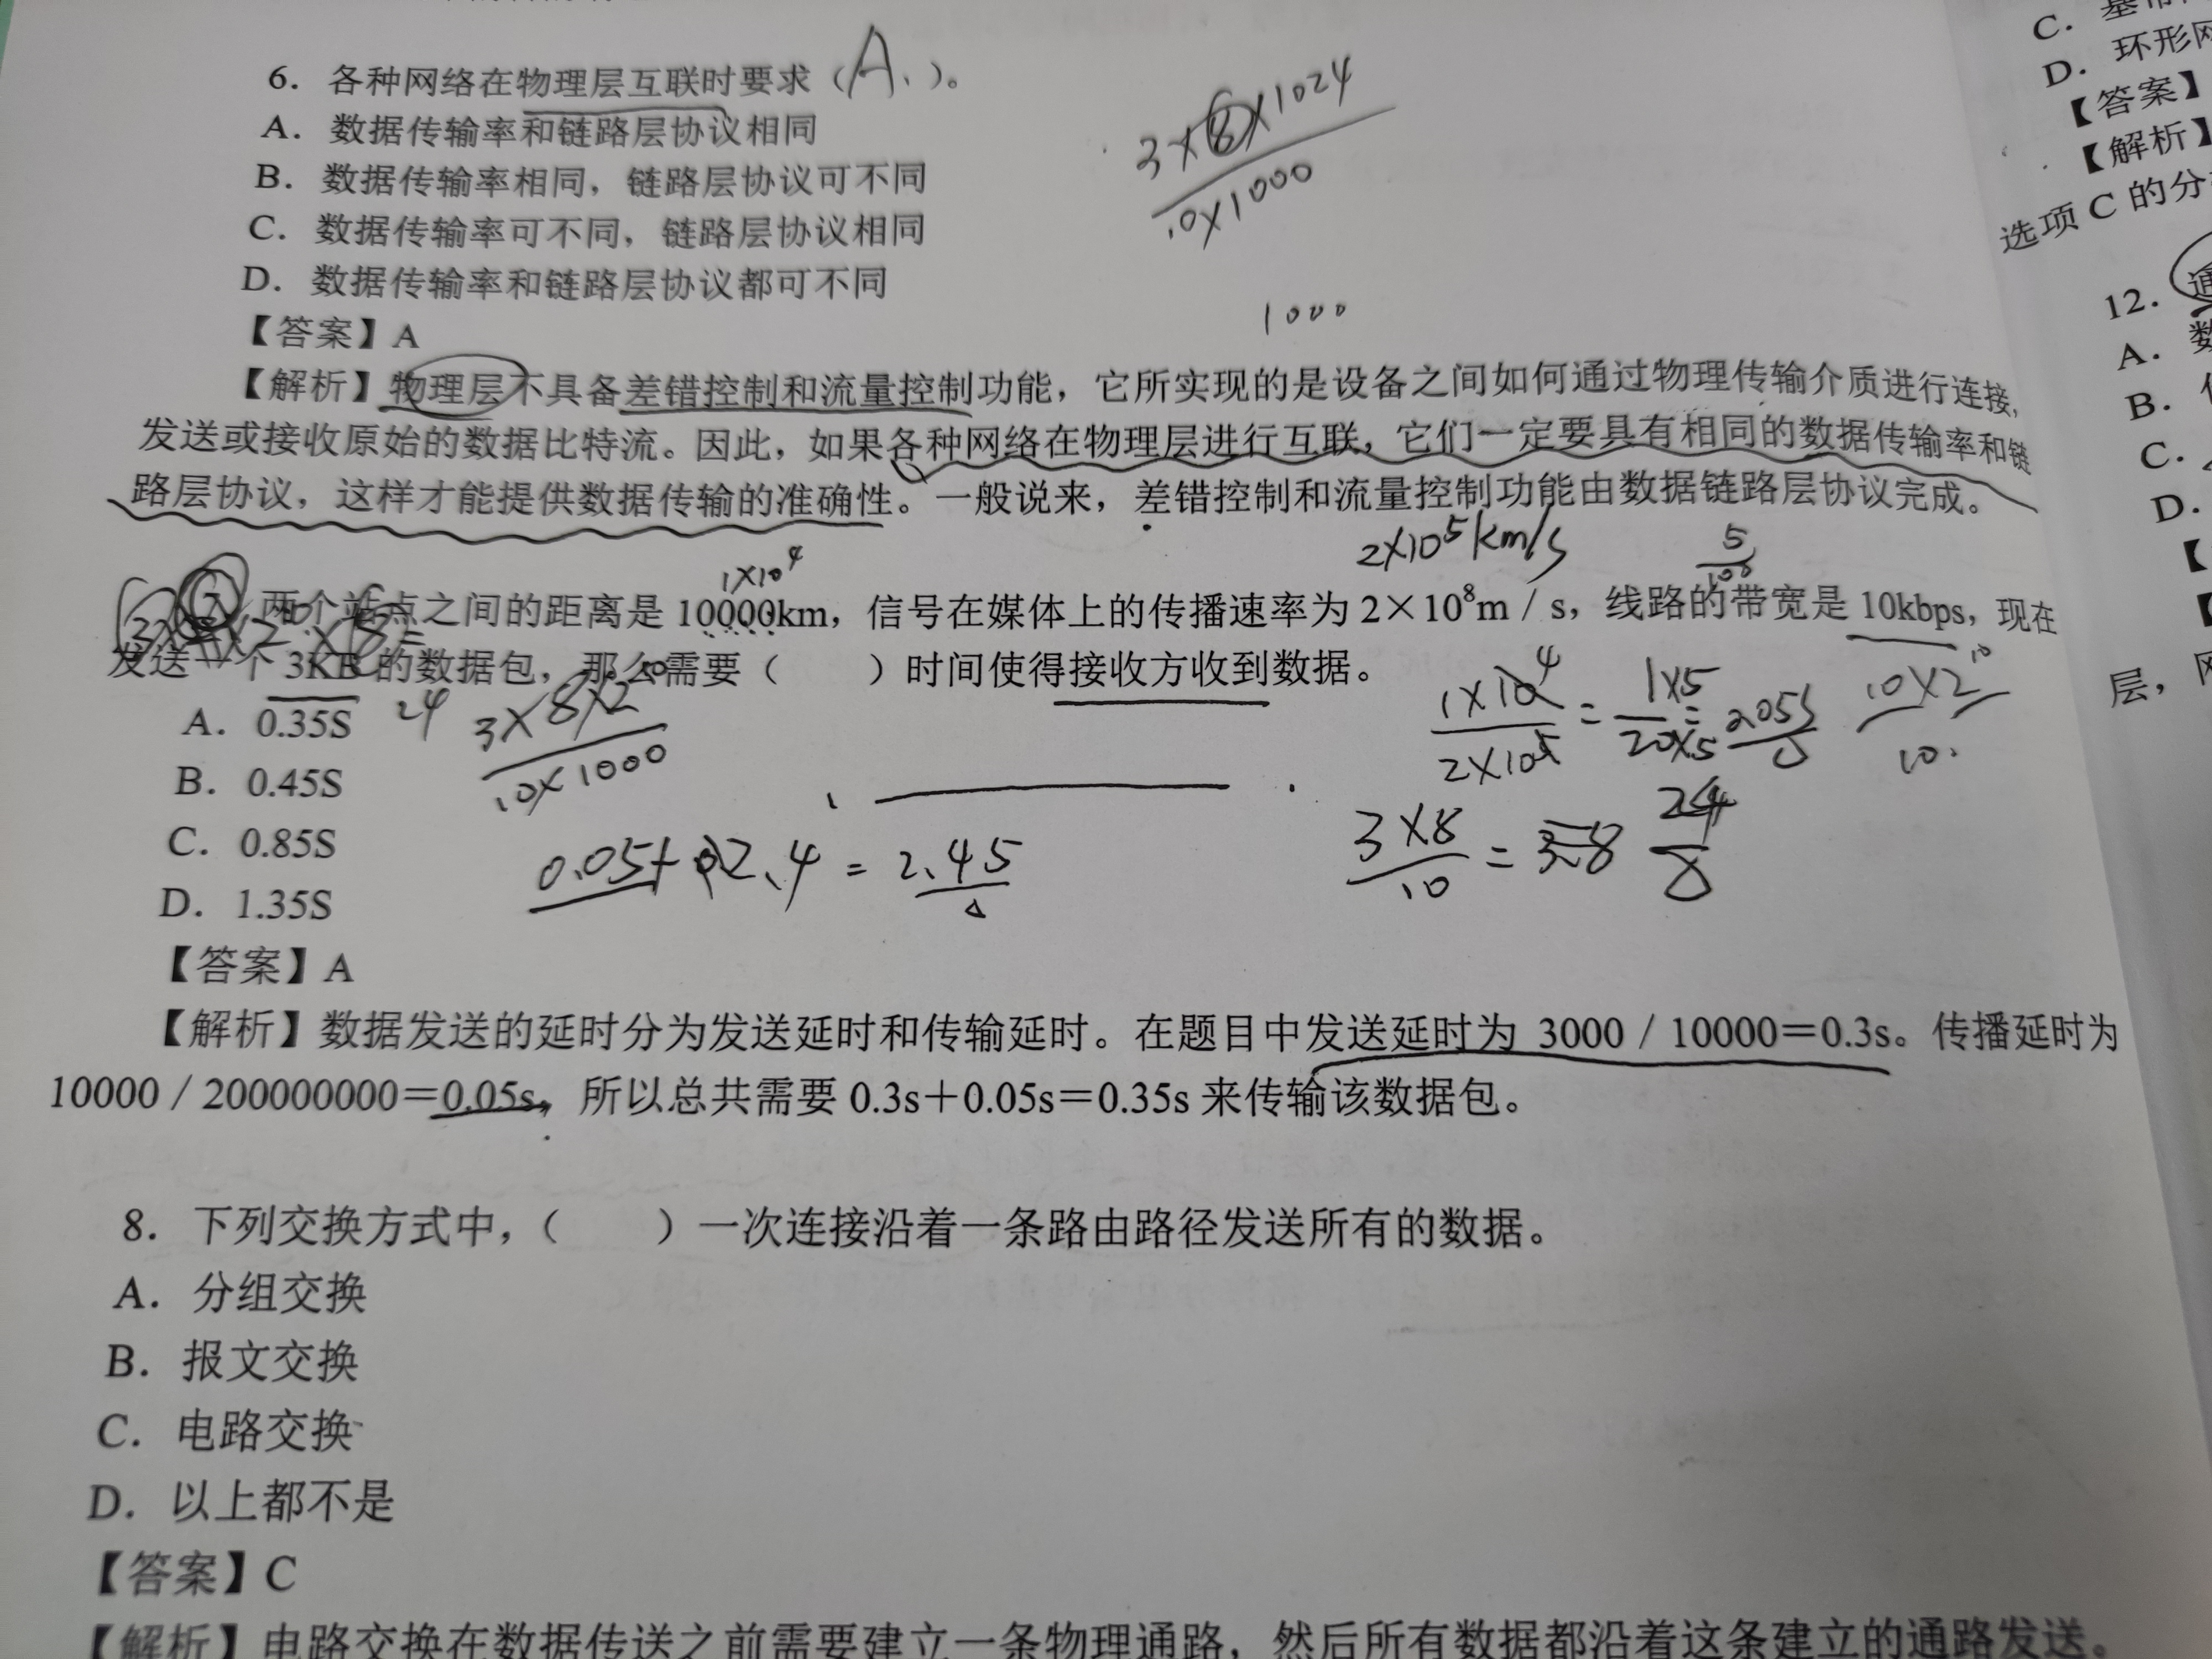 6. 各种网络在物理层互联时要求（A.）。
A. 数据传输率和链路层协议相同
B. 数据传输率相同，链路层协议可不同
C. 数据传输率可不同，链路层协议相同
D. 数据传输率和链路层协议都可不同
【答案】A
【解析】物理层不具备差错控制和流量控制功能，它所实现的是设备之间如何通过物理传输介质进行连接，
发送或接收原始的数据比特流。因此，如果各种网络在物理层进行互联，它们一定要具有相同的数据传输率和链
路层协议，这样才能提供数据传输的准确性。一般说来，差错控制和流量控制功能由数据链路层协议完成。
3×8×1024
10×1000
1000
2×10⁵km/s
5
100
1×10⁴
两个站点之间的距离是 10000km，信号在媒体上的传播速率为 2×10⁸m / s，线路的带宽是 10kbps，现在
发送一个 3KB 的数据包，那么需要（ ）时间使得接收方收到数据。
A. 0.35S
B. 0.45S
C. 0.85S
D. 1.35S
24
3×8×2¹⁰
10×1000
1×10⁴
2×10⁵
=
1×5
20×5
10×2¹⁰
10.
3×8
10
=
24
0.05+2.4=2.45
【答案】A
【解析】数据发送的延时分为发送延时和传输延时。在题目中发送延时为 3000 / 10000＝0.3s。传播延时为
10000 / 200000000＝0.05s，所以总共需要 0.3s＋0.05s＝0.35s 来传输该数据包。
8. 下列交换方式中，（ ）一次连接沿着一条路由路径发送所有的数据。
A. 分组交换
B. 报文交换
C. 电路交换
D. 以上都不是
【答案】C
【解析】电路交换在数据传送之前需要建立一条物理通路，然后所有数据都沿着这条建立的通路发送。
C. 基带
D. 环形网
【答案】
【解析】
选项 C 的分
12. 通
A. 数
B.
C.
D.
【
【
层，网